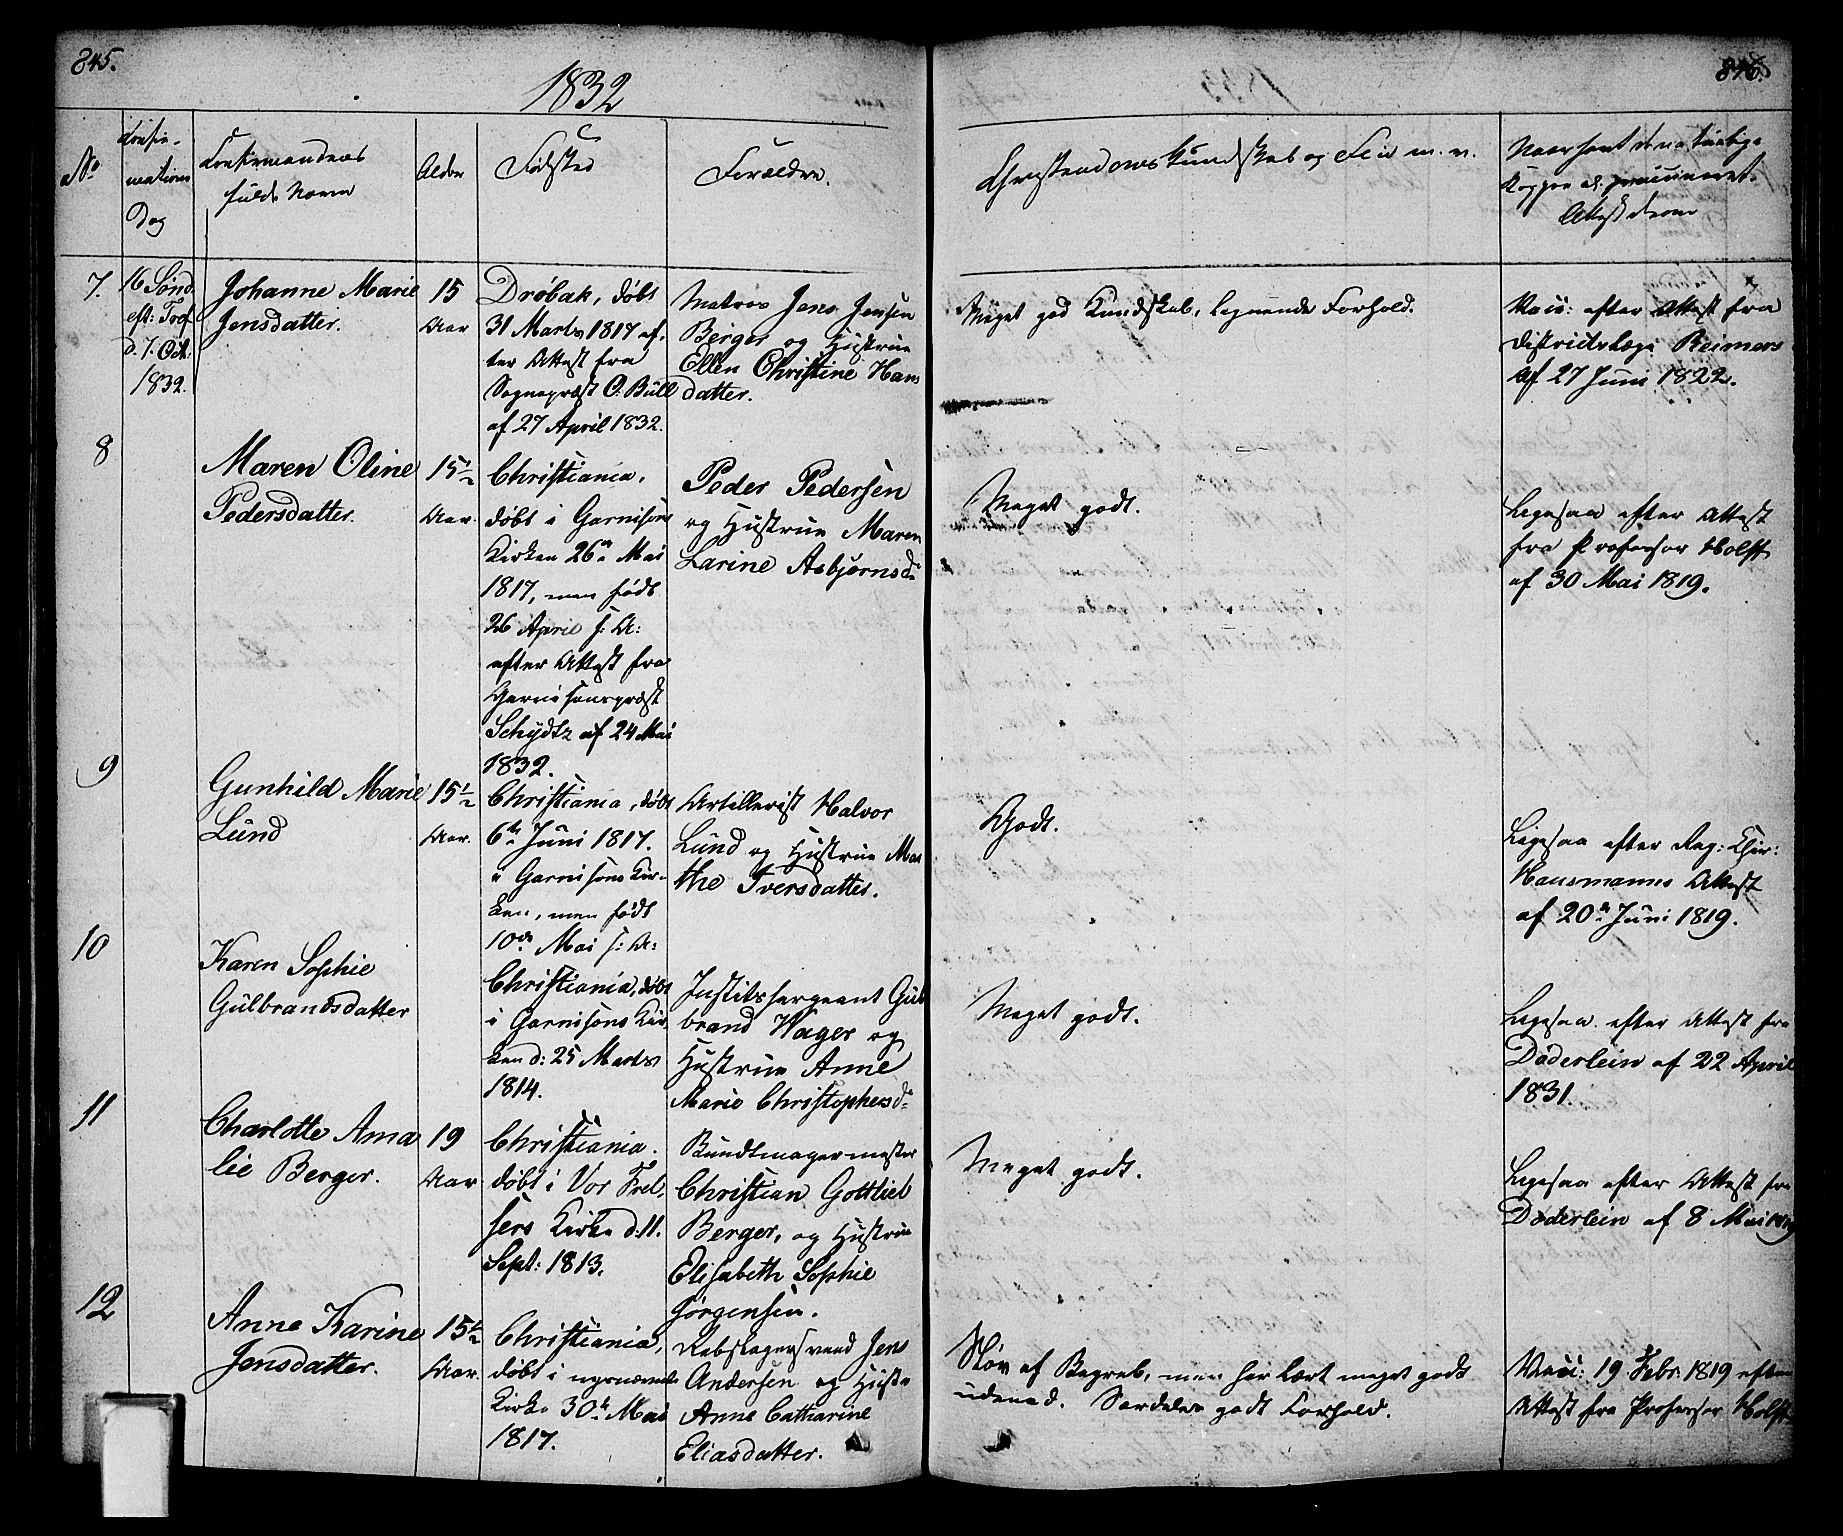 845.
846.
1832
No
Confir-
mations
Dag
Confirmandens
fulde Navn
Alder
Fødsted
Forældre.
Christendomskundskab og Flid m. v.
Naar havt de naturlige
Kopper el. vaccineret.
Attest derom
7.
16 Sønd.
eft: Tref.
d. 7. Oct.
1832.
Johanne Marie
Jensdatter.
15
Aar
Drøbak, døbt
31 Marts 1817 ef-
ter Attest fra
Sognepræst O. Büll
af 27 April 1832.
Matros Jens Jensen
Berger og Hustrue
Ellen Christine Hans
datter.
Meget god Kundskab, lignende Forhold.
Vacc: efter Attest fra
Districtslæge Reimers
af 27 Juni 1822.
8
Maren Oline
Pedersdatter.
15½
Aar.
Christiania,
døbt i Garnisons
Kirken 26de Mai
1817, men født
26 April s: A:
efter Attest fra
Garnisonspræst
Schydtz af 24 Mai
1832.
Peder Pedersen
og Hustrue Maren
Larine Asbjørnsdr
Meget godt.
Ligesaa efter Attest
fra Professor Holst
af 30 Mai 1819.
9
Gunhild Marie
Lund
15½
Aar.
Christiania, døbt
6te Juni 1817.
i Garnisons Kir-
ken, men født
10de Mai s: A:
Artillerist Halvor
Lund og Hustrue Mar
the Iversdatter.
Godt.
Ligesaa efter Reg: Chir:
Hansmanns Attest
af 20de Juni 1819.
10
Karen Sophie
Gulbrandsdatter
Christiania, døbt
i Garnisons Kir
ken d: 25 Marts
1814.
Justitssergeant Gul
brand Wager og
Hustrue Anne
Marie Christophersdr
Meget godt.
Ligesaa efter Attest fra
Döderlein af 22 April
1831.
11
Charlotte Ama
lie Berger.
19
Aar
Christiania.
døbt i Vor Frel
sers Kirke d. 11.
Sept: 1813.
Bundtmagermester
Christian Gottlieb
Berger, og Hustrue
Elisabeth Sophie
Jørgensen.
Meget godt.
Ligesaa efter Attest fra
Döderlein af 8 Mai 1819
12
Anne Karine
Jensdatter.
15½
Aar.
Christiania,
døbt i nysnævnte
Kirke 30te Mai
1817.
Rebslagersvend Jens
Andersen og Hustr
Anne Catharine
Eliasdatter.
Sløv af Begreb, men har lært meget godt
udenad. Særdeles godt Forhold.
Vacc: 19 Febr: 1819 efter
Attest fra Professor Holst